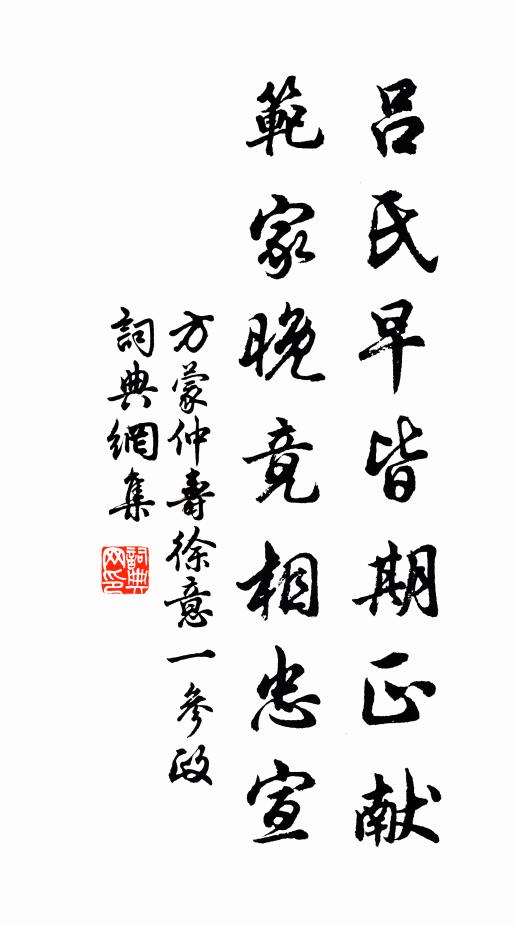 吕氏早皆期正献
範家晚竟相忠宣
方蒙仲壽徐意一參政
詞典網集
詞典网印